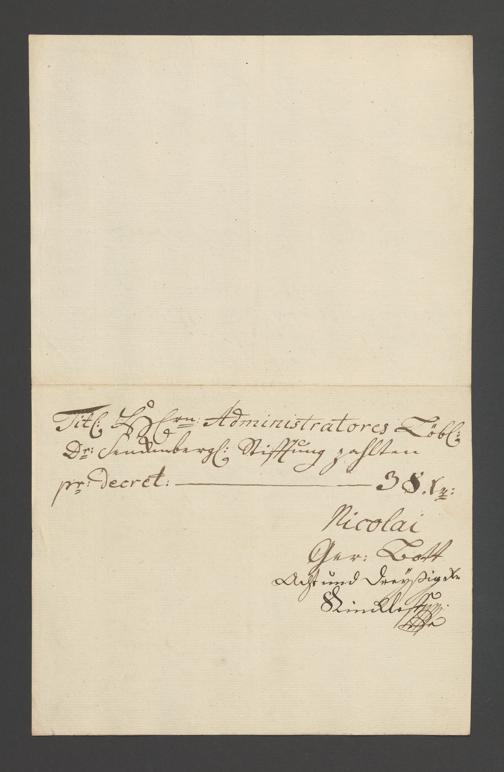 Titl: HHrn Administratores Löbl:
Dr: Senckenbergl: Stifftung zahlten
pr: Decret: 38. xr:
Nicolai
Ger: Bott
Acht und Dreyßig xr